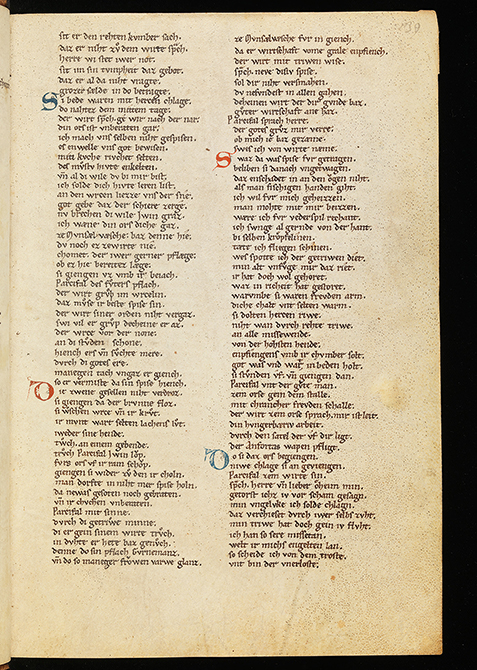 sit er den rehten kvmber sach.
daz er niht zv dem wirte sp̄ch.
herre wi stet iwer not.
sit im sin tvmpheit daz gebot.
daz er al da niht vragte.
grozer sælde in do betragte.
Si bede waren mit herzen chlage.
do nahter dem mittem tage.
der wirt sp̄ch. ge wir nach der nar.
din ors ist vnberaten gar.
ich mach vns selben niht gespisen.
es enwelle vns got bewisen.
min kvche rivchet selten.
des mv̊stv hivte enkelten.
vn̄ al di wile dv bi mir bist.
ich solde dich hivte leren list.
an den wrcen lieze vns der sne.
got gebe daz der schiere zerge.
nv brechen di wile iwin graz.
ich wæne din ors diche gaz.
ze Mvnsalvæsche baz denne hie.
dv noch ez ze wirte nie.
chomet der iwer gerner pflæge.
ob ez hie bereitez læge.
si giengen vz vmb ir beiach.
Parcifal des fv̊ters pflach.
der wirt grv̊p im wrcelin.
daz mv̊se ir beste spise sin.
der wirt siner orden niht vergaz.
swi vil er grv̊p decheine er az.
der wrce vor der none.
an di stvden schone.
hiench ers vn̄ sv̊chte mere.
dvrch di gotes ere.
manegen tach vngaz er giench.
so er vermiste da sin spise hiench.
Die zwene gesellen niht verdroz.
si giengen da der brvnne floz.
si wschen wrce vn̄ ir krvt.
ir mvnt wart selten lachens lvt.
iweder sine hende.
twch. an einem gebende.
trv̊ch Parcifal iwin lo̊p.
fvrs ors vf ir ram scho̊p.
giengen si wider zv̊ den ir choln.
man dorfte in niht mer spise holn.
da newas gesoten noch gebraten.
vn̄ ir chvchen vnberaten.
Parcifal mit sinne.
dvrch di getriwe minne.
di er gein sinem wirte trv̊ch.
in dvhte er hete baz genv̊ch.
denne do sin pflach Gvrnemanz.
vn̄ do so maneger frowen varwe glanz.
ze Mvnsalvæsche fvr in giench.
da er wirtschaft vome grale enpfiench.
der wirt mit triwen wise.
sp̄ch. neve disiv spise.
sol dir niht versmahen.
dv nefvndest in allen gahen.
deheinen wirt der dir gvnde baz.
gv̊ter wirtschaft ane haz.
Parcifal sprach herre.
der gotes grv̊z mir verre.
ob mich ie baz gezæme.
swes ich von wirte neme.
Swaz da was spise fvr getragen.
beliben si danach vngetwagen.
daz enschadet in an den ovgen niht.
als man fischegen handen giht.
ich wil fvr mich geheizzen.
man mohte mit mir beizzen.
were ich fvr vederspil rechant.
ich swnge al gernde von der hant.
bi selhen krvpfelinen.
tæte ich fliegen schinen.
wes spotte ich der getriwen diet.
min alt vnfvge mir daz riet.
ir hat doch wol gehoret.
waz in richeit hat gestoret.
warvmbe si waren frevden arm.
diche chalt vnt selten warm.
si dolten herzen riwe.
niht wan dvrch rehte triwe.
an alle missewende.
von der hohsten hende.
enpfiengens vmb ir chvmber solt.
got was vnd wart in beden holt.
si stvnden vf. vn̄ giengen dan.
Parcifal vnt der gv̊te man.
zem orse gein dem stalle.
mit chrancher frevden schalle.
der wirt zem orse sprach. mir ist leit.
din hvngerbæriv arbeit.
dvrch den satel der vf dir ligt.
der Anfortas wapen pfligt.
Do si daz ors begiengen.
niwe chlage si an geviengen.
Parcifal zem wirte sin.
sp̄ch. herre vn̄ lieber oheim min.
getorst ichz iv vor scham gesagn.
min vngelvke ich solde chlagn.
daz verchieset dvrch iwer selbes zvht.
min triwe hat doch gein iv flvht.
ich han so sere missetan.
welt ir michs engelten lan.
so scheide ich von dem troste.
vnt bin der vnerloste.